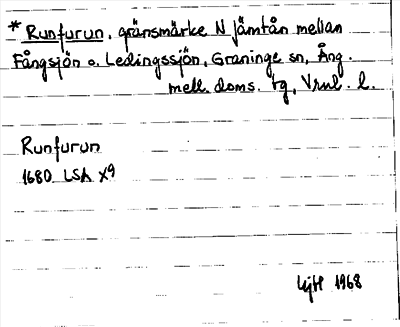 * Runfurun, gränsmärke N Jämtån mellan
Fångsjön o. Ledingssjön, Graninge sn, Ång.
mell. doms. tg, Vrnl. l.
Runfurun
1680 LSA X9
LjH 1968